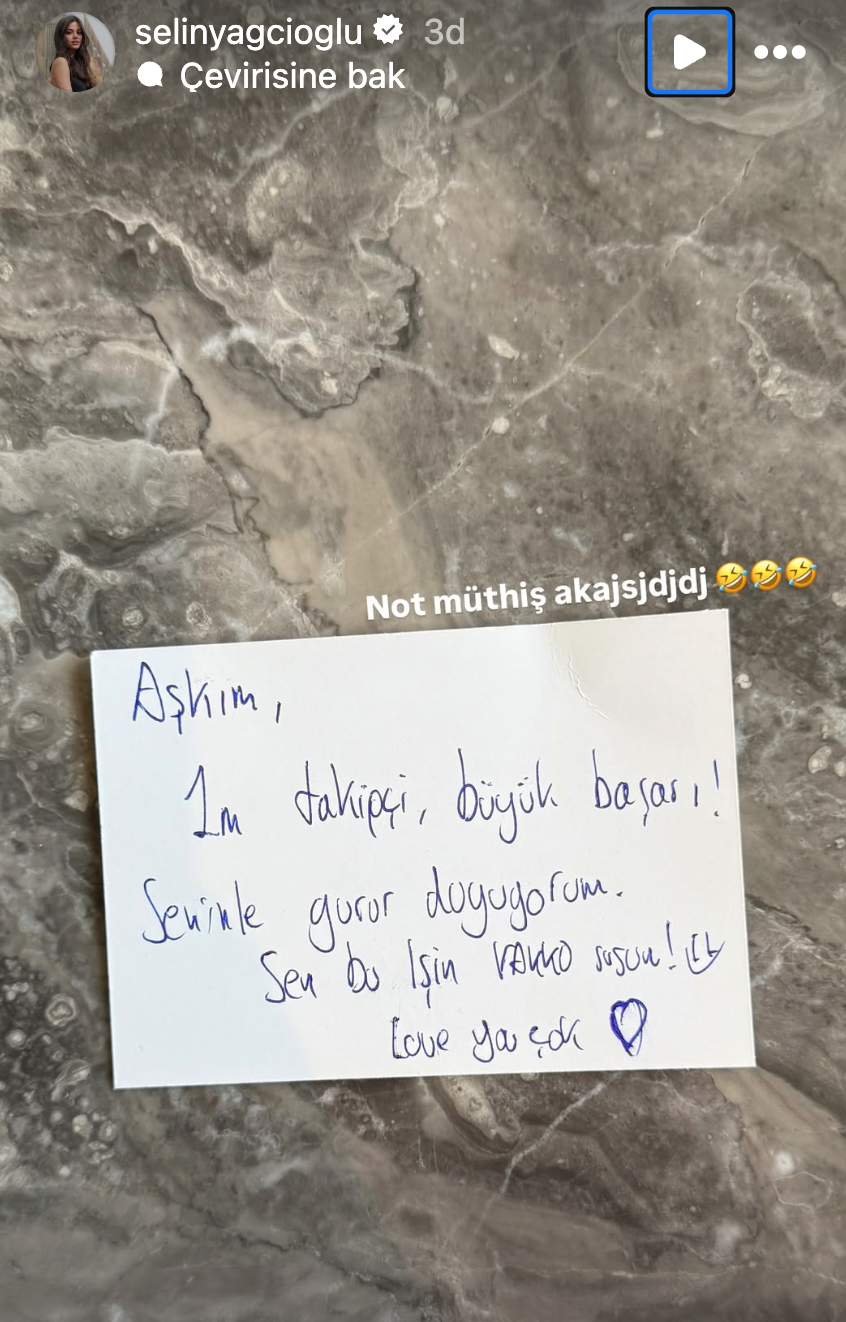 selinyagcioglu 3d
Çevirisine bak
Not müthiş akajsjdjdj 🤣🤣🤣
Aşkım,
1m takipçi, büyük başarı!
Seninle gurur duyuyorum.
Sen bu işin VAKKO susun!
Love ya çok ♡